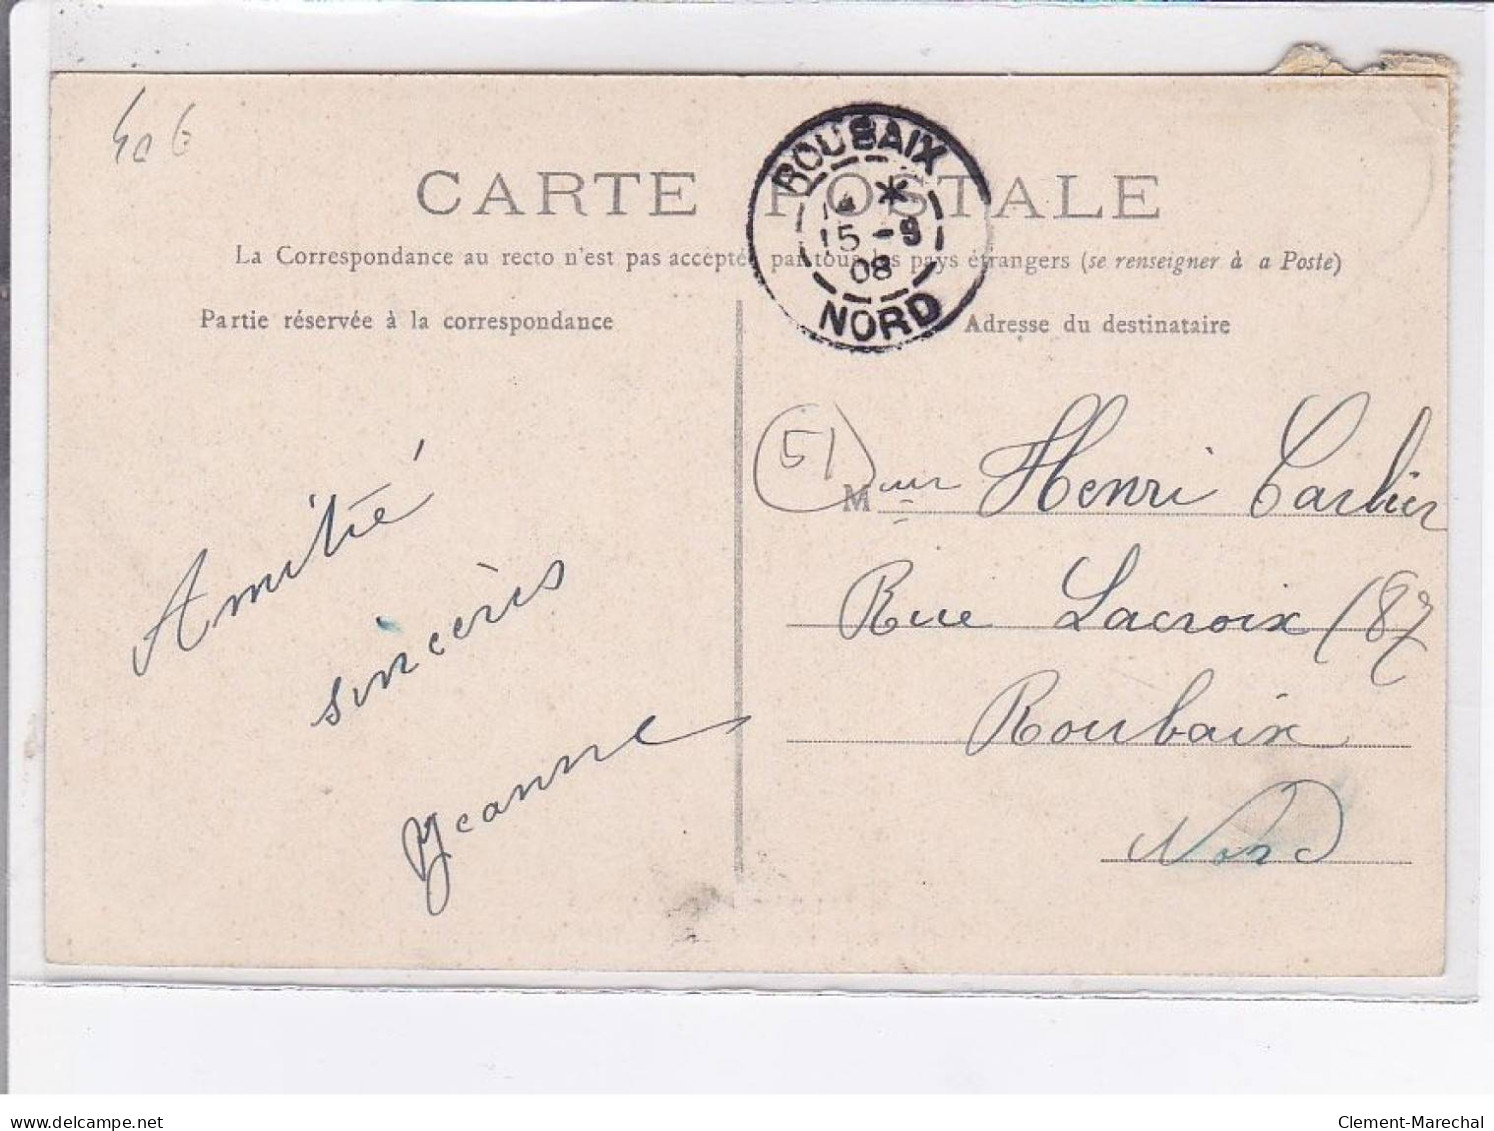 40 €
CARTE POSTALE
ROUBAIX
14 *
15 -9
08
NORD
La Correspondance au recto n'est pas acceptée par tous les pays étrangers (se renseigner à a Poste)
Partie réservée à la correspondance
Adresse du destinataire
Amitié
sincères
Jeanne
51
Meur Henri Carlier
Rue Lacroix 187
Roubaix
Nord
delcampe.net
Clement-Marechal